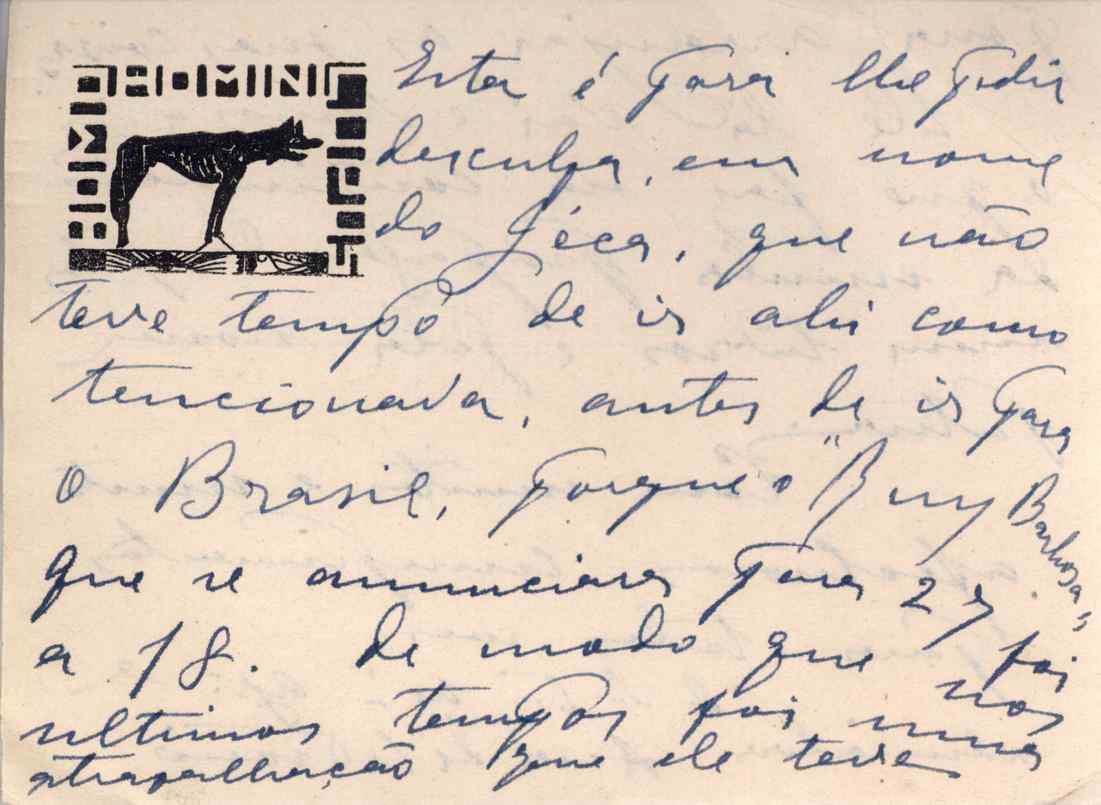 HOMO HOMINI LUPUS
Esta é para lhe pedir
desculpa, em nome
do Jéca, que não
teve tempo de ir ahi como
tencionava, antes de ir para
o Brasil, porque o "Ruy Barbosa"
que se anunciara para 27 foi
a 18. De modo que nos
ultimos tempos foi uma
atrapalhação que ele teve